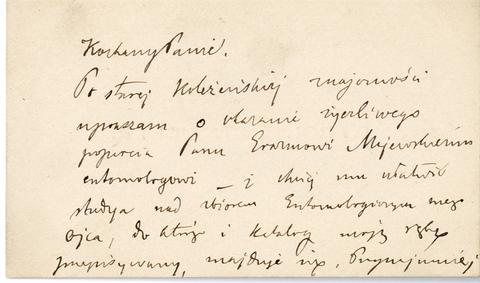 Kochany Panie.
Po starej koleżeńskiej znajomości
upraszam o okazanie życzliwego
poparcia Panu Erazmowi Majewskiemu
entomologowi – i chciej mu ułatwić
studya nad zbiorem Entomologicznym mego
Ojca, do którego i katalog moją ręką
przepisywany, znajduje się. Przynajmniej